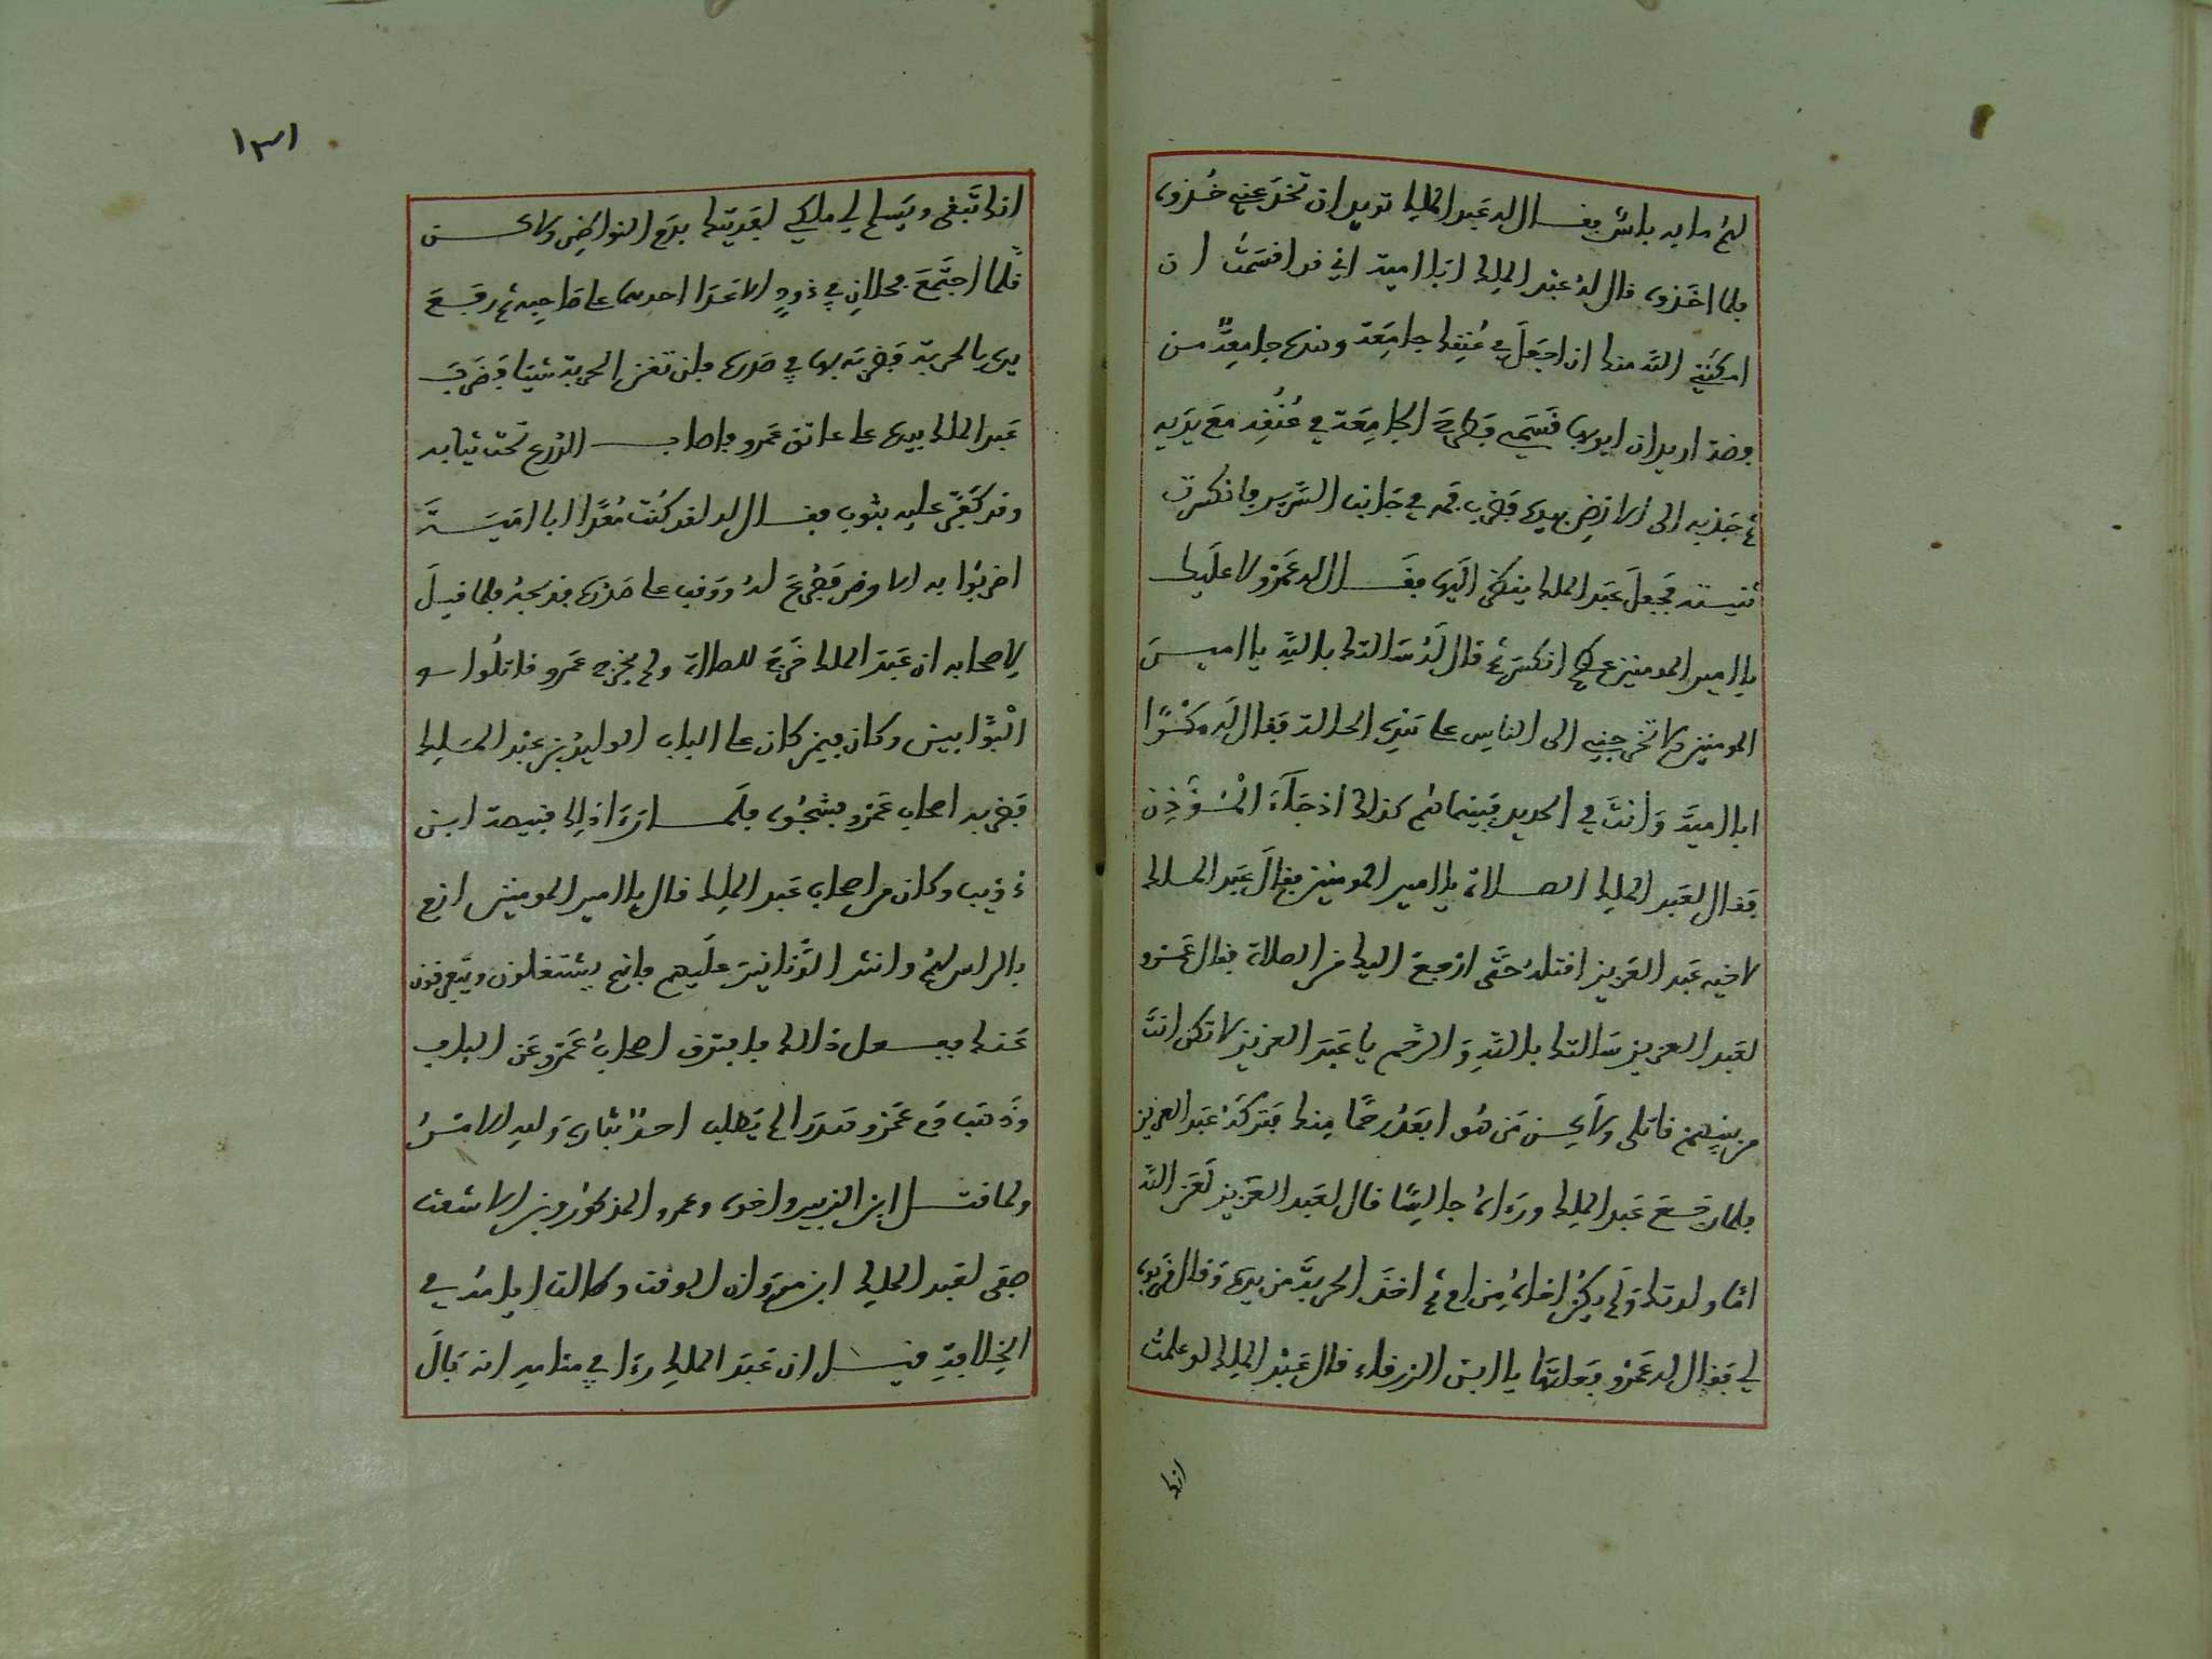 لهم ما به باس فقال له عبد الملك تريد ان تخدعني خذوه
فلما اخذوه قال له عبد الملك ابا امية اني قد اقسمت ان
امكنني الله منك ان اجعل في عنقك جامعة وهذه جامعة من
فضة اريد ان ابر بها قسمي فطرح الجامعة في عنقه مع يديه
ثم جذبه الى الارض بيده فضرب فمه في جانب السرير فانكسرت
ثنيته فجعل عبد الملك ينظر اليها فقال له عمرو لا عليك
يا امير المومنين عظم انكسر ثم قال له سالتك بالله يا امير
المومنين لا تخرجني الى الناس على هذه الحالة فقال له مكرا
ابا امية وانت في الحديد فبينما هم كذلك اذ جاء المؤذن
فقال لعبد الملك الصلاة يا امير المومنين فقال عبد الملك
لاخيه عبد العزيز اقتله حتى ارجع اليك من الصلاة فقال عمرو
لعبد العزيز سالتك بالله والرحم يا عبد العزيز لا تكن انت
من بينهم قاتلي ولاكن من هو ابعد رحما منك فتركه عبد العزيز
فلما رجع عبد الملك ورءاه جالسا قال لعبد العزيز لعن الله
اما ولدتك ولم يكن اخاه من ام ثم اخذ الحربة من يده وقال قربوه
لي فقال له عمرو فعلتها يا ابن الزرقاء قال عبد الملك لو علمت
انك
١٣١
انك تبقى ويسلم لي ملكي لفديتك بدم النواظر ولاكن
قلما اجتمع فحلان في ذود الا عدا احدهما على صاحبه ثم رفع
يده بالحربة فضربه بها في صدره فلم تغن الحربة شيئا فضرب
عبد الملك بيده على عاتق عمرو فاصاب الدرع تحت ثيابه
وقد كفر عليه بثوب فقال له لقد كنت معدا ابا امية
اضربوا به الارض فصرع له ووقف على صدره فذبحه فلما قيل
لاصحابه ان عبد الملك خرج للصلاة ولم يخرج عمرو قاتلوا
البوابين وكان فيمن كان على الباب الوليد بن عبد الملك
فضربه اصحاب عمرو فشجوه فلما رءا ذلك قبيصة ابن
ذؤيب وكان من اصحاب عبد الملك قال يا امير المومنين ارم
بالراس لهم وانثر الدنانير عليهم فانهم يشتغلون ويتفرقون
عنك ففعل ذالك فافترق اصحاب عمرو عن الباب
وذهب دم عمرو هدرا لم يطلب احد بثاره وليه الامر
ولما قتل ابن الزبير واخوه وعمرو المذكور وبن الاشعث
صفى لعبد الملك ابن مروان الوقت وطالت ايامه في
الخلافة قيل ان عبد الملك رءا في منامه انه بال